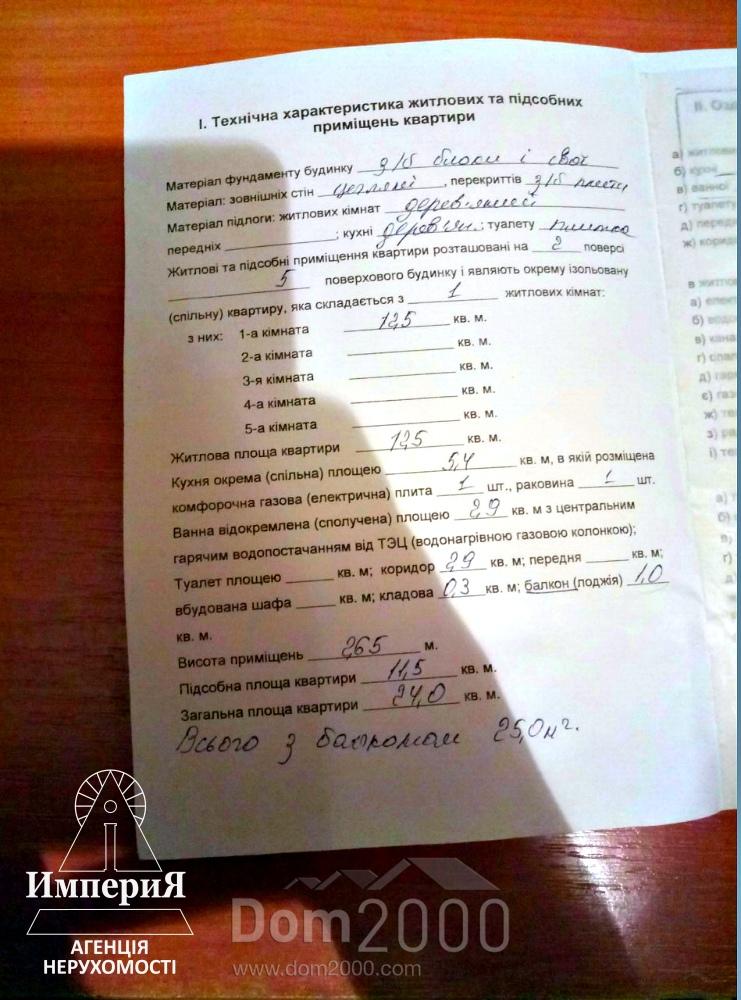 І. Технічна характеристика житлових та підсобних
приміщень квартири
Матеріал фундаменту будинку з/б блоки і свої
Матеріал: зовнішніх стін цегляні, перекриттів з/б плити
Матеріал підлоги: житлових кімнат дерев'яний
передніх ; кухні дерев'ян.; туалету плитка
Житлові та підсобні приміщення квартири розташовані на 2 поверсі
5 поверхового будинку і являють окрему ізольовану
(спільну) квартиру, яка складається з 1 житлових кімнат:
з них: 1-а кімната 12,5 кв. м.
2-а кімната кв. м.
3-я кімната кв. м.
4-а кімната кв. м.
5-а кімната кв. м.
Житлова площа квартири 12,5 кв. м.
Кухня окрема (спільна) площею 5,4 кв. м, в якій розміщена
комфорочна газова (електрична) плита 1 шт., раковина 1 шт.
Ванна відокремлена (сполучена) площею 2,9 кв. м з центральним
гарячим водопостачанням від ТЭЦ (водонагрівною газовою колонкою);
Туалет площею кв. м; коридор 2,9 кв. м; передня кв. м;
вбудована шафа кв. м; кладова 0,3 кв. м; балкон (лоджія) 1,0
кв. м.
Висота приміщень 2,65 м.
Підсобна площа квартири 11,5 кв. м.
Загальна площа квартири 24,0 кв. м.
Всього з балконом 25,0 м².
ИмпериЯ
АГЕНЦІЯ
НЕРУХОМОСТІ
Dom2000
www.dom2000.com